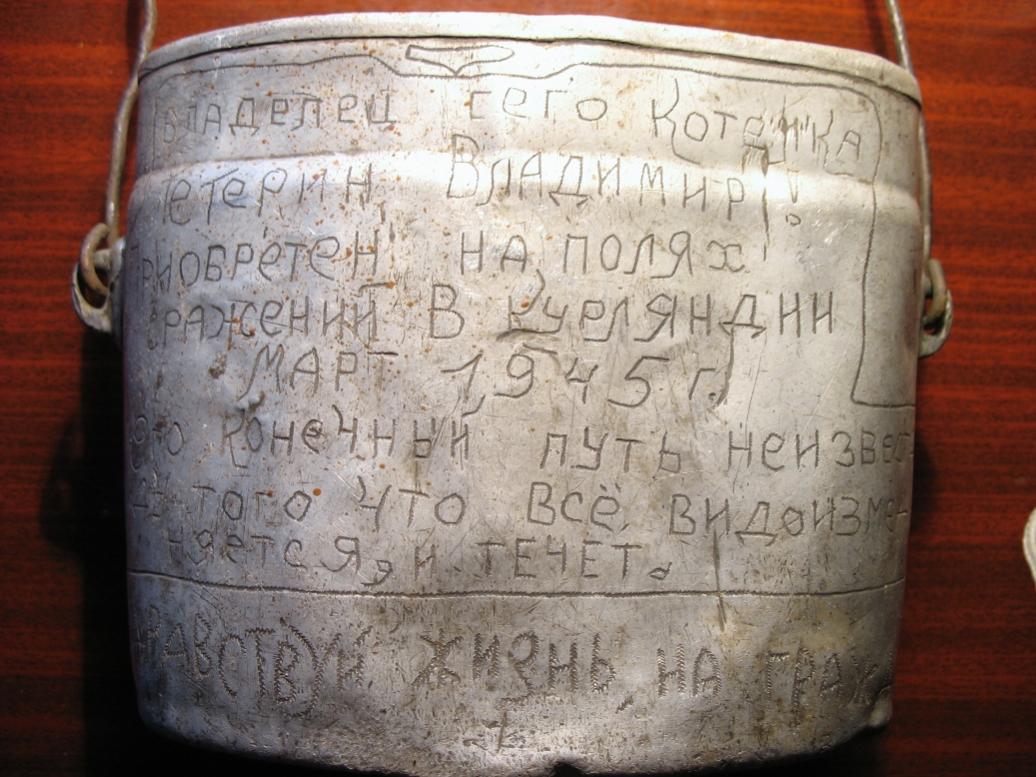 Владелец сего котелка
Петерин Владимир!
приобретен на полях
сражений в Курляндии
МАРТ 1945 г.
Его конечный путь неизвес-
из того что всё видоизме-
няется, и течет.
здравствуй жизнь на граж